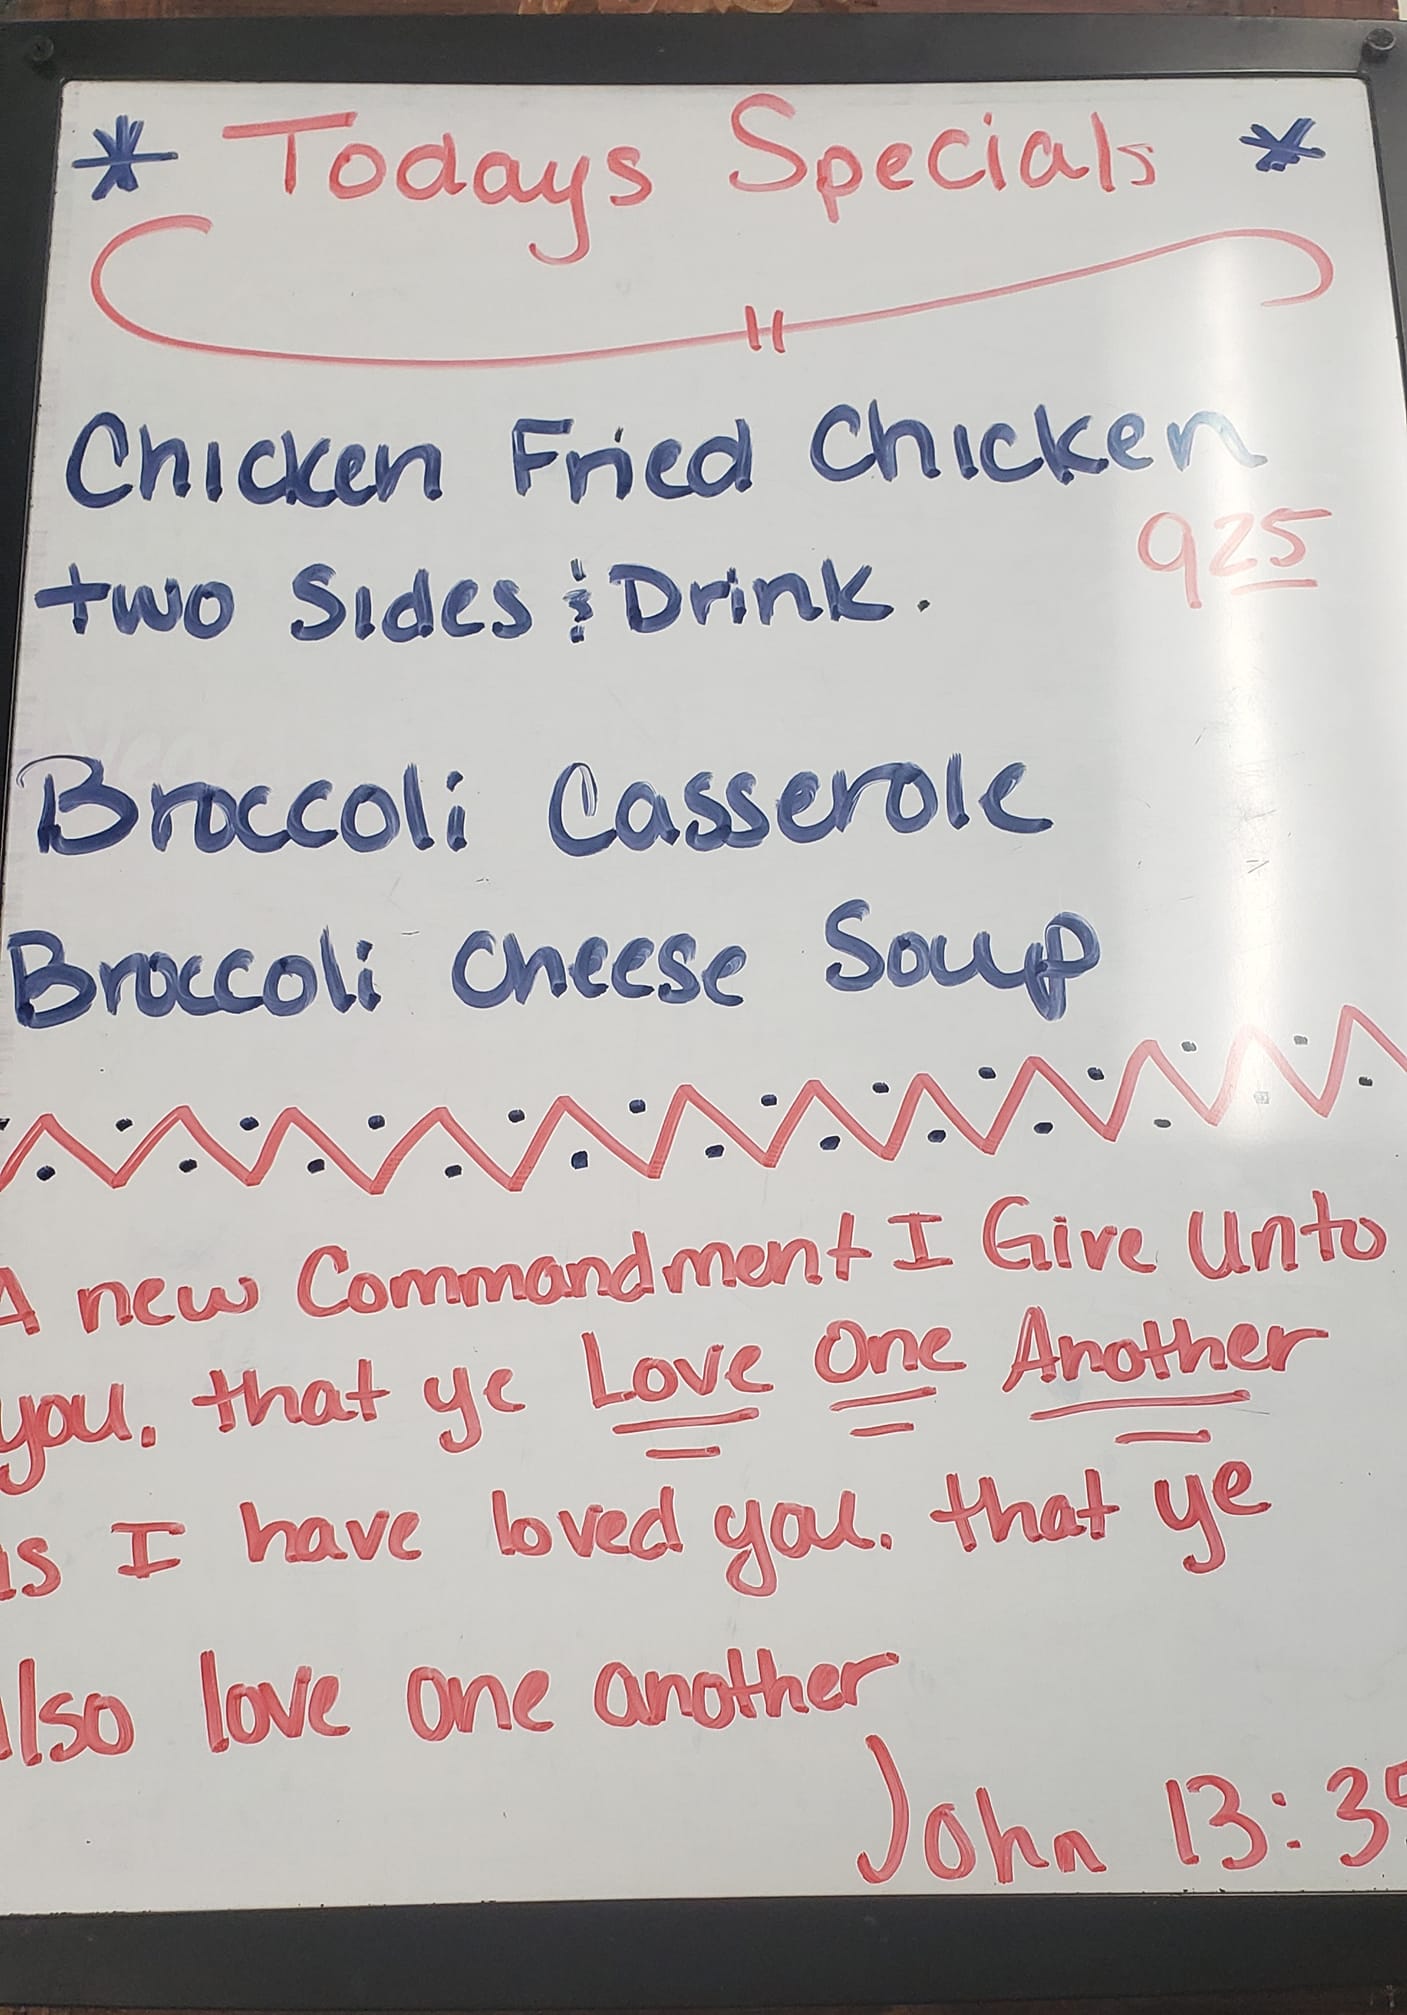 * Todays Specials *
Chicken Fried Chicken
925
two Sides & Drink.
Broccoli Casserole
Broccoli Cheese Soup
A new Commandment I Give Unto
you. that ye Love One Another
as I have loved you. that ye
also love one another
John 13:35